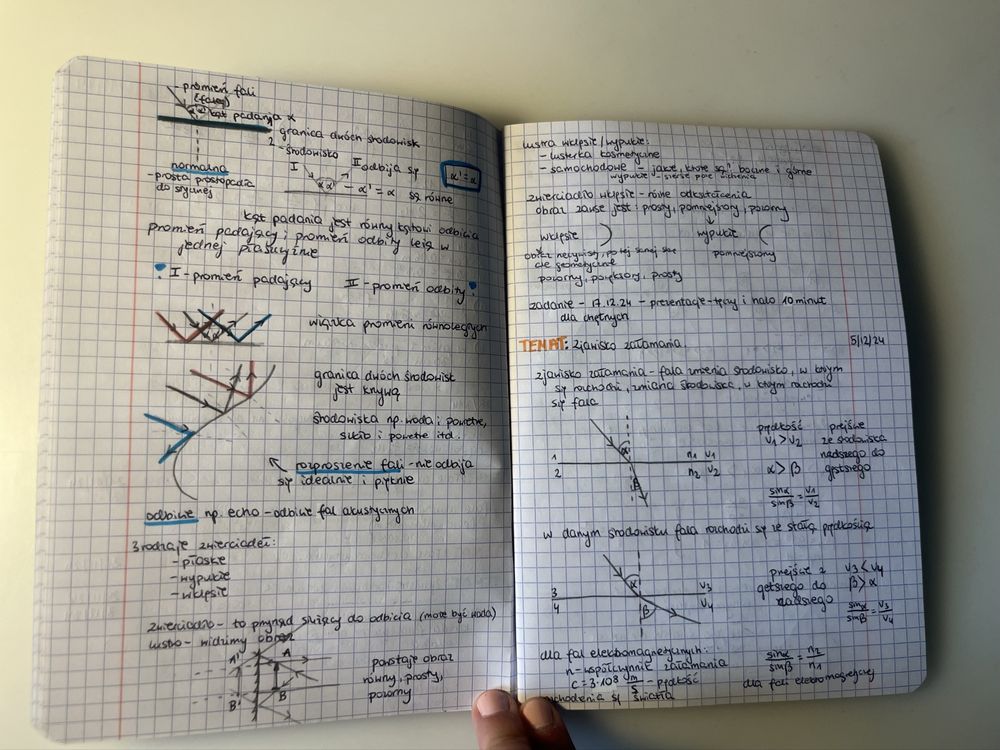 - promień fali
(fazę)
α' α kąt padania α
granica dwóch środowisk
2 - środowisko
normalna
- prosta prostopadła
do stycznej
I II odbija się
α α' - α' = α są równe
α' = α
kąt padania jest równy kątowi odbicia
promień padający i promień odbity leżą w
jednej płaszczyźnie
I - promień padający II - promień odbity
wiązka promieni równoległych
granica dwóch środowisk
jest krzywą
środowiska np. woda i powietrze,
szkło i powietrze itd.
rozproszenie fali - nie odbija
się idealnie i pięknie
odbicie np. echo - odbicie fal akustycznych
3 rodzaje zwierciadeł:
- płaskie
- wypukłe
- wklęsłe
zwierciadło - to przyrząd służący do odbicia (może być woda)
lustro - widzimy obraz
A' A
B' B
powstaje obraz
równy, prosty,
pozorny
lustra wklęsłe/wypukłe:
- lusterka kosmetyczne
- samochodowe - jakie, które są? boczne i górne
wypukłe - szersze pole widzenia
zwierciadło wklęsłe - różne odkształcenia
obraz zawsze jest: prosty, pomniejszony, pozorny
wklęsłe wypukłe
pomniejszony
pozorny, powiększony, prosty
zadanie - 17.12.24 - prezentacje - tęczy i halo 10 minut
dla chętnych
TEMAT: Zjawisko załamania. 5/12/24
zjawisko załamania - fala zmienia środowisko, w którym
się rozchodzi, zmiana środowiska, w którym rozchodzi
się fala
α
1 n₁ v₁
2 n₂ v₂
β
prędkość
v₁ > v₂
α > β
sinα/sinβ = v₁/v₂
przejście
ze środowiska
rzadszego do
gęstszego
w danym środowisku fala rozchodzi się ze stałą prędkością
α
3 v₃
4 v₄
β
przejście z
gęstszego do
rzadszego
v₃ < v₄
β > α
sinα/sinβ = v₃/v₄
dla fal elektromagnetycznych:
n - współczynnik załamania
c = 3·10⁸ m/s - prędkość
rozchodzenia się światła
sinα/sinβ = n₂/n₁
dla fali elektromagnetycznej